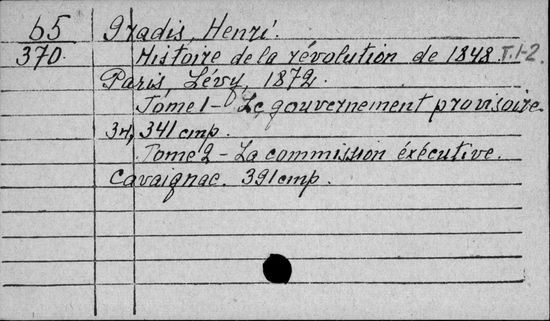 65 Gradis, Henri.
370. Histoire de la révolution de 1848 T.1-2.
Paris, Lévy, 1872.
Tome 1 - Le gouvernement provisoire.
34, 341 стр.
Tome 2 - La commission éxécutive.
Cavaignac. 391 стр.